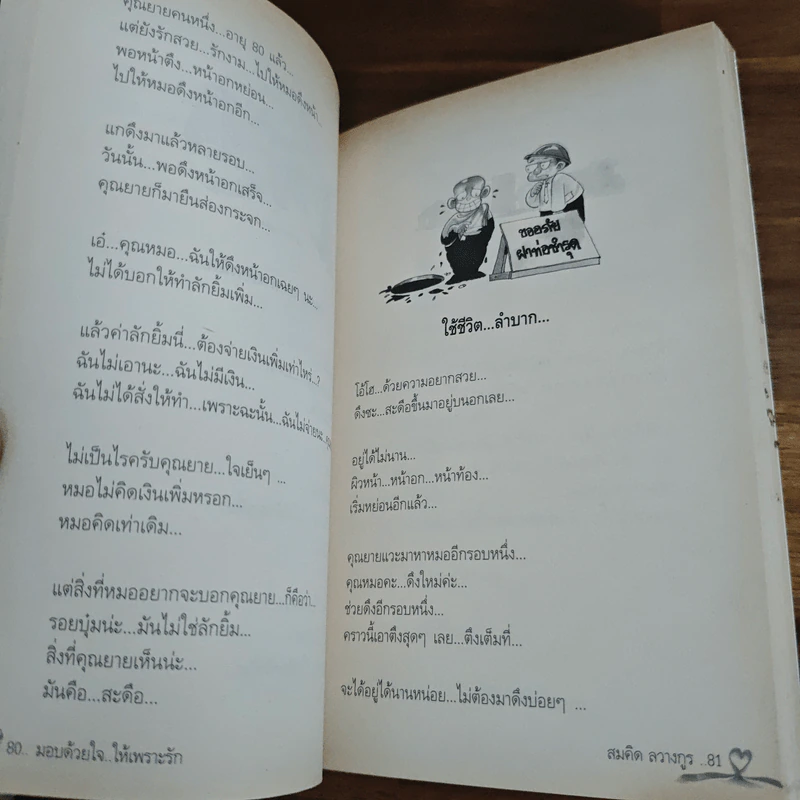 คุณยายคนหนึ่ง...อายุ 80 แล้ว...
แต่ยังรักสวย...รักงาม...ไปให้หมอดึงหน้า...
พอหน้าตึง...หน้าอกหย่อน...
ไปให้หมอดึงหน้าอกอีก...
แกดึงมาแล้วหลายรอบ...
วันนั้น...พอดึงหน้าอกเสร็จ...
คุณยายก็มายืนส่องกระจก...
เอ๋...คุณหมอ...ฉันให้ดึงหน้าอกเฉยๆ นะ...
ไม่ได้บอกให้ทำลักยิ้มเพิ่ม...
แล้วค่าลักยิ้มนี่...ต้องจ่ายเงินเพิ่มเท่าไหร่...?
ฉันไม่เอานะ...ฉันไม่มีเงิน...
ฉันไม่ได้สั่งให้ทำ...เพราะฉะนั้น...ฉันไม่จ่ายนะ...
ไม่เป็นไรครับคุณยาย...ใจเย็นๆ ...
หมอไม่คิดเงินเพิ่มหรอก...
หมอคิดเท่าเดิม...
แต่สิ่งที่หมออยากจะบอกคุณยาย...ก็คือว่า...
รอยบุ๋มน่ะ...มันไม่ใช่ลักยิ้ม...
สิ่งที่คุณยายเห็นน่ะ...
มันคือ...สะดือ...
80.. มอบด้วยใจ..ให้เพราะรัก
ขออภัย
ฝาท่อชำรุด
ใช้ชีวิต...ลำบาก...
โอ้โฮ...ด้วยความอยากสวย...
ดึงซะ...สะดือขึ้นมาอยู่บนอกเลย...
อยู่ได้ไม่นาน...
ผิวหน้า...หน้าอก...หน้าท้อง...
เริ่มหย่อนอีกแล้ว...
คุณยายแวะมาหาหมออีกรอบหนึ่ง...
คุณหมอคะ...ดึงใหม่ค่ะ...
ช่วยดึงอีกรอบหนึ่ง...
คราวนี้เอาตึงสุดๆ เลย...ตึงเต็มที่...
จะได้อยู่ได้นานหน่อย...ไม่ต้องมาดึงบ่อยๆ ...
สมคิด ลวางกูร ..81